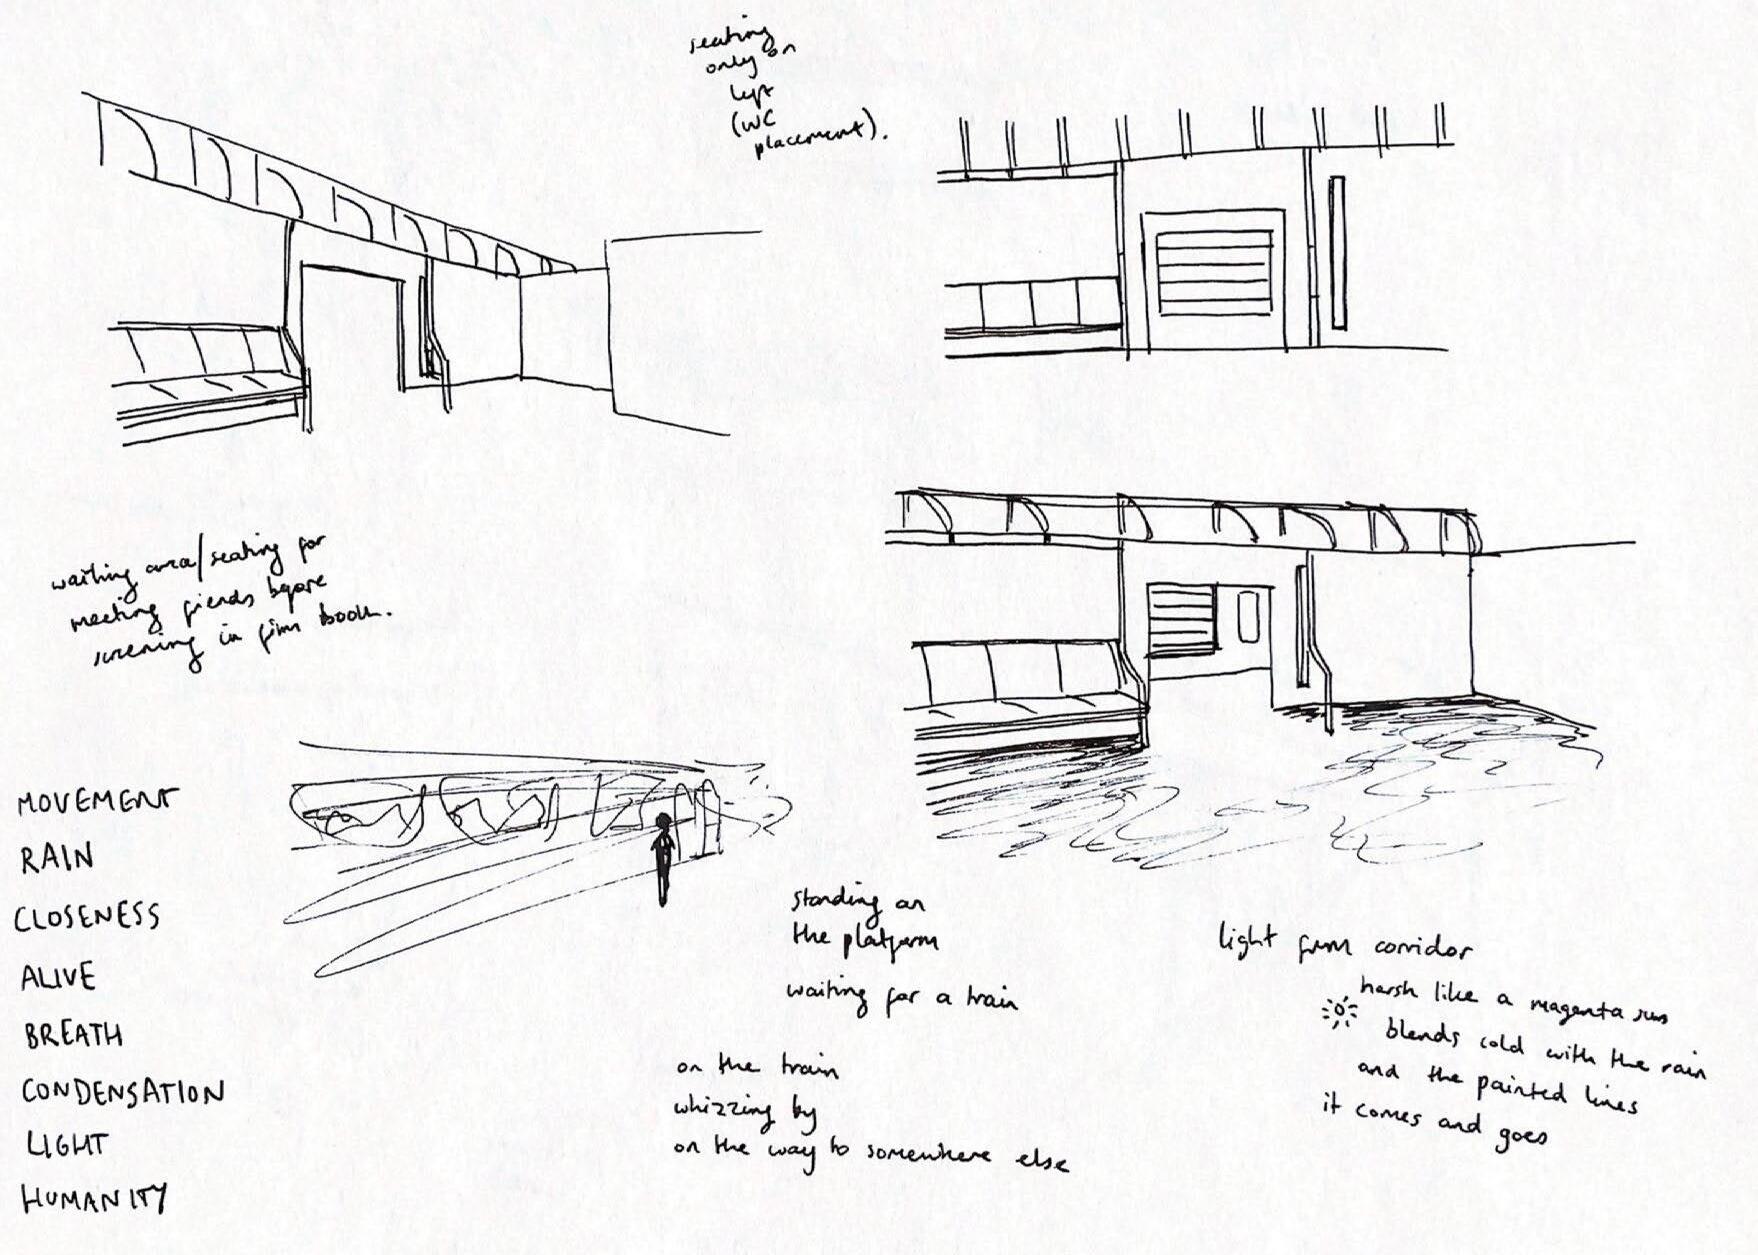 seating
only on
left
(WC
placement).
waiting area/seating for
meeting friends before
screening in film booth.
MOVEMENT
RAIN
CLOSENESS
ALIVE
BREATH
CONDENSATION
LIGHT
HUMANITY
standing on
the platform
waiting for a train
on the train
whizzing by
on the way to somewhere else
light from corridor
harsh like a magenta sun
blends cold with the rain
and the painted lines
it comes and goes